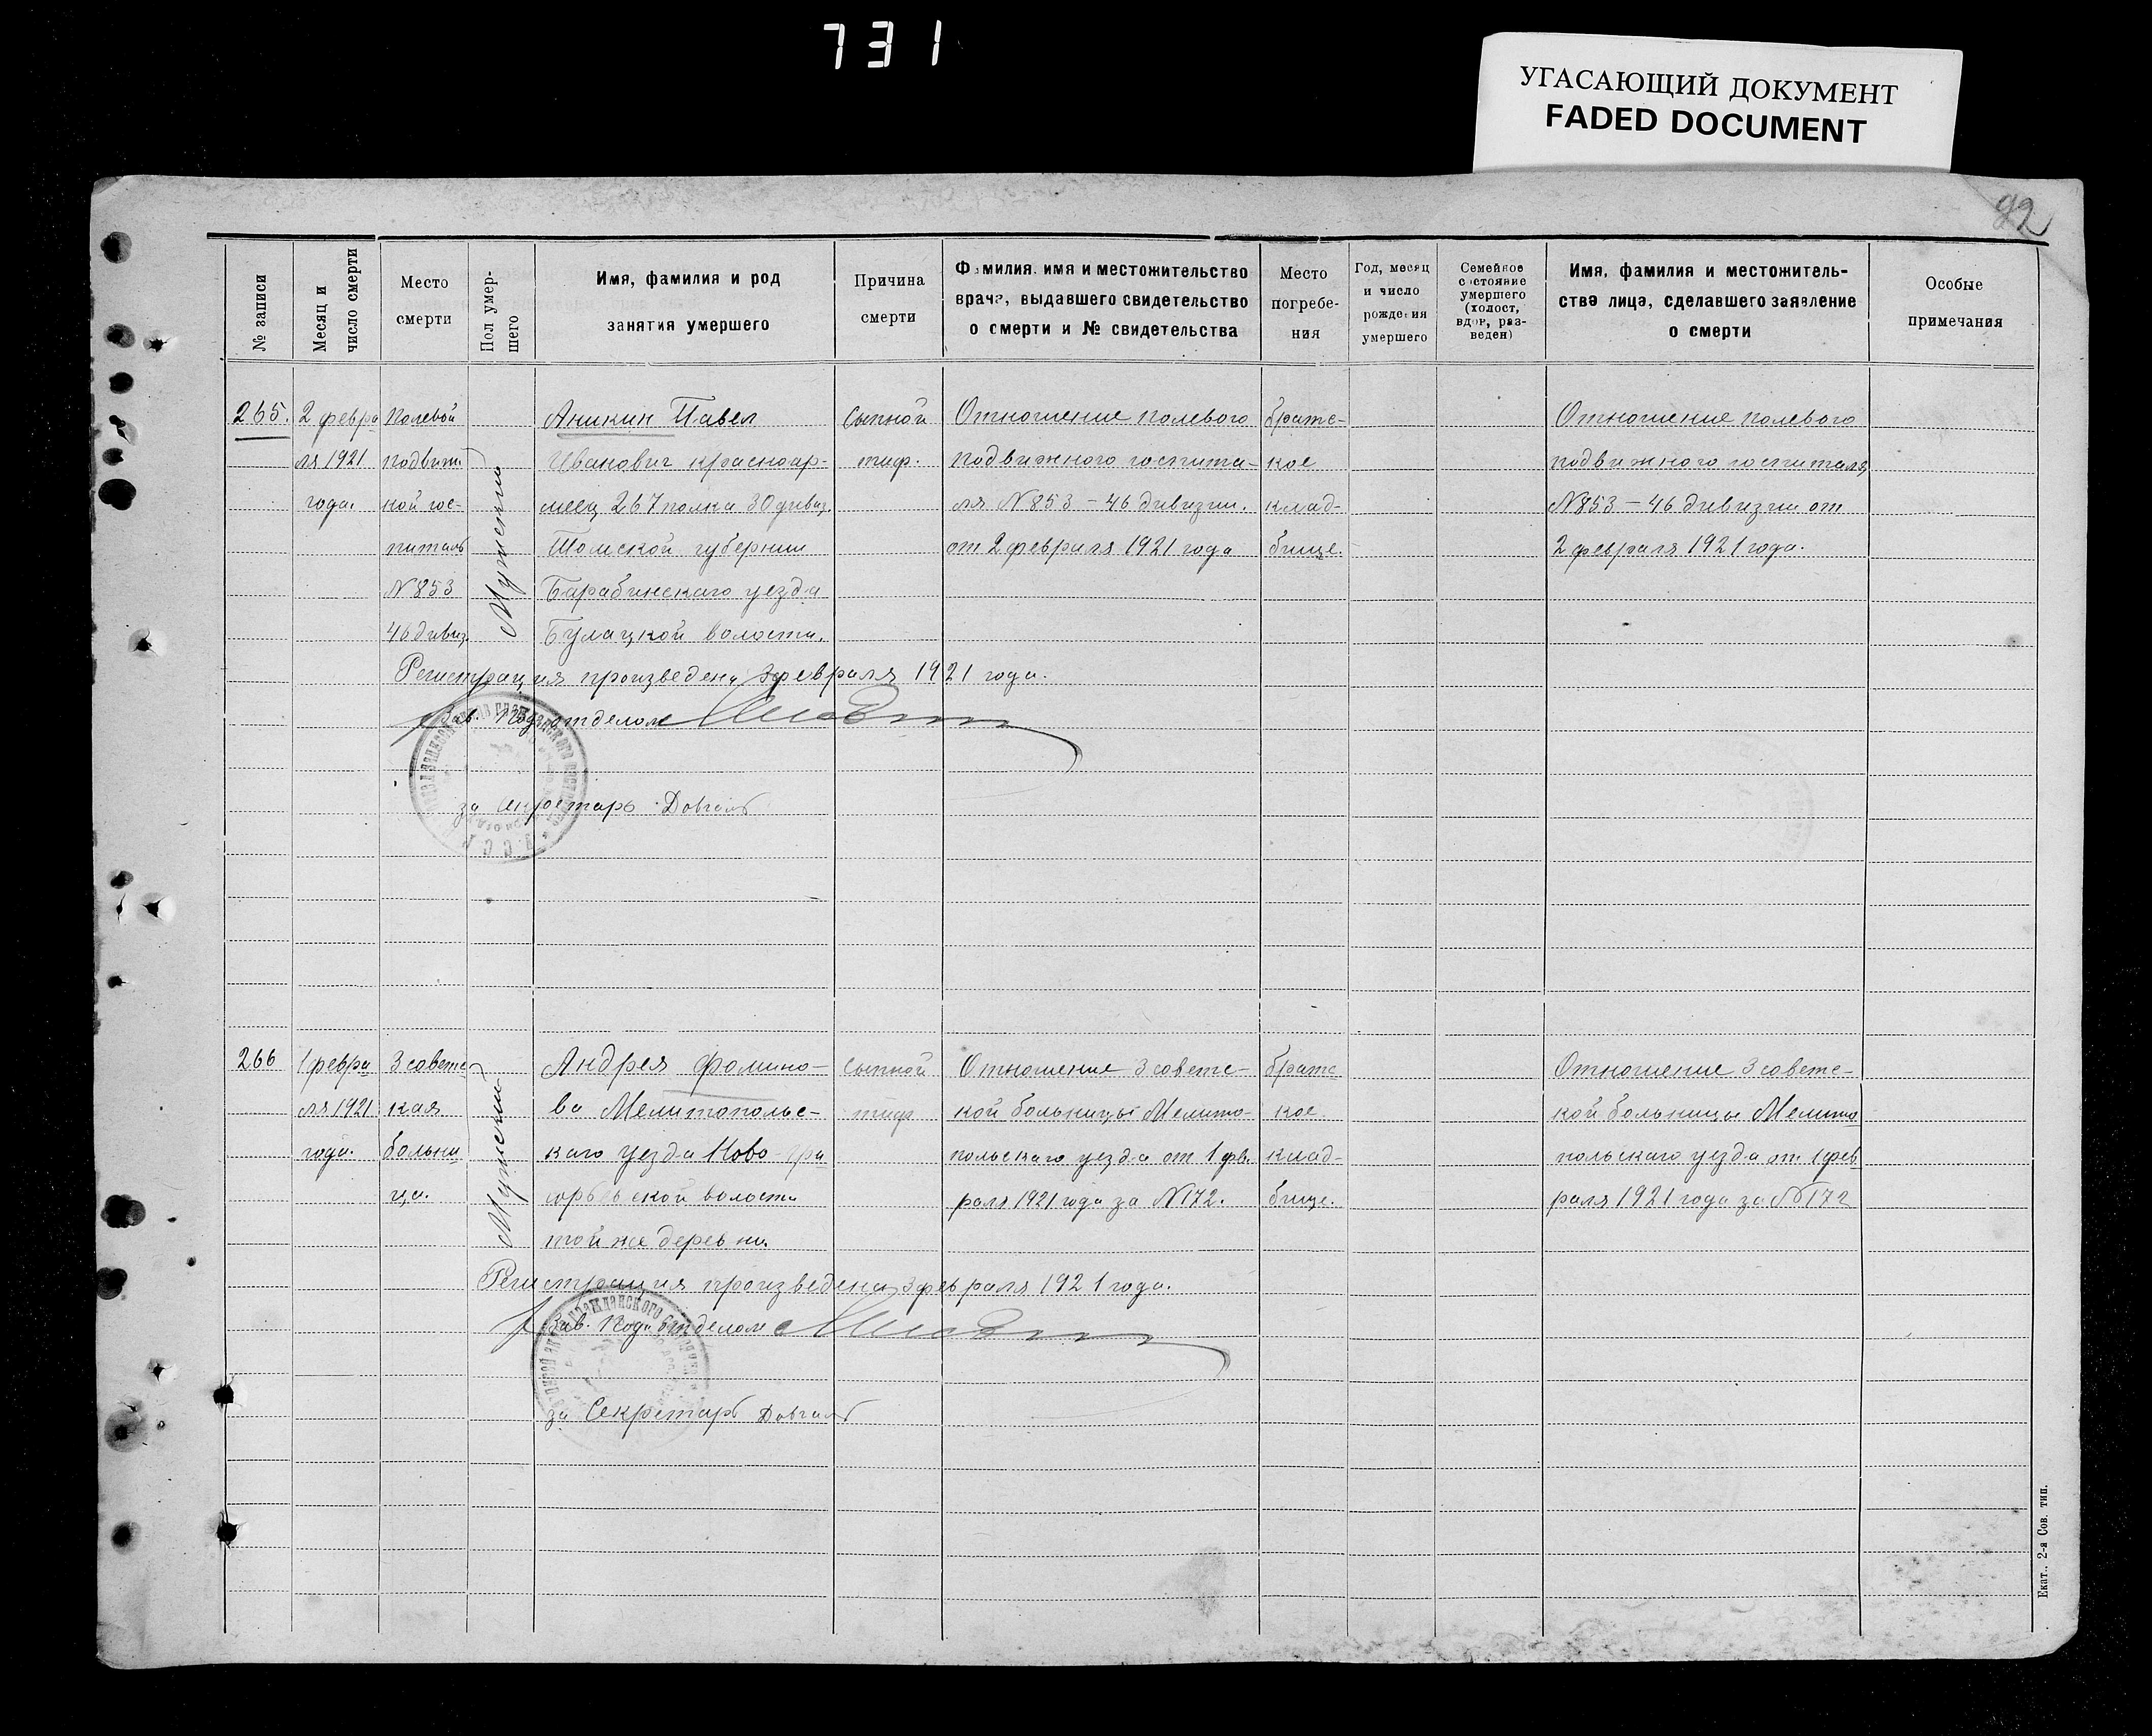 731
УГАСАЮЩИЙ ДОКУМЕНТ
FADED DOCUMENT
92
№ записи
Месяц и
число смерти
Место
смерти
Пол умер-
шего
Имя, фамилия и род
занятия умершего
Причина
смерти
Фамилия, имя и местожительство
врача, выдавшего свидетельство
о смерти и № свидетельства
Место
погребе-
ния
Год, месяц
и число
рождения
умершего
Семейное
состояние
умершего
(холост,
вдов, раз-
веден)
Имя, фамилия и местожитель-
ства лица, сделавшего заявление
о смерти
Особые
примечания
265.
2 февра
ля 1921
года.
Полевой
подвиж.
ной гос-
питаль
N 853
46 дивиз.
Мужеский
Аникин Павел
Иванович красноар-
меец 267 полка 30 дивиз.
Томской губернии
Барабинскаго уезда
Булацкой волости.
Сыпной
тиф.
Отношение полевого
подвижного госпита-
ля N 853 – 46 дивизии.
от 2 февраля 1921 года
братс-
кое
клад-
бище.
Отношение полевого
подвижного госпиталя
N 853 – 46 дивизии от
2 февраля 1921 года.
Регистрация произведена 3 февраля 1921 года.
Зав. Подотделом
за Секретарь Довгаль
266
1 февра
ля 1921
года.
3 советс
кая
больни
ца.
Мужеский
Андрея Фомино-
ва Мелитопольс-
каго уезда Ново-
ской волости
той же деревни.
Сыпной
тиф
Отношение 3 советс-
кой больницы Мелито-
польскаго уезда от 1 фв.
раля 1921 года за N 172.
братс
кое
клад-
бище.
Отношение 3 советс-
кой больницы Мелито
польскаго уезда от 1 фев
раля 1921 года за N 172
Регистрация произведена 3 февраля 1921 года.
Зав. Подотделом
за Секретарь Довгаль
Екат., 2-я Сов. тип.